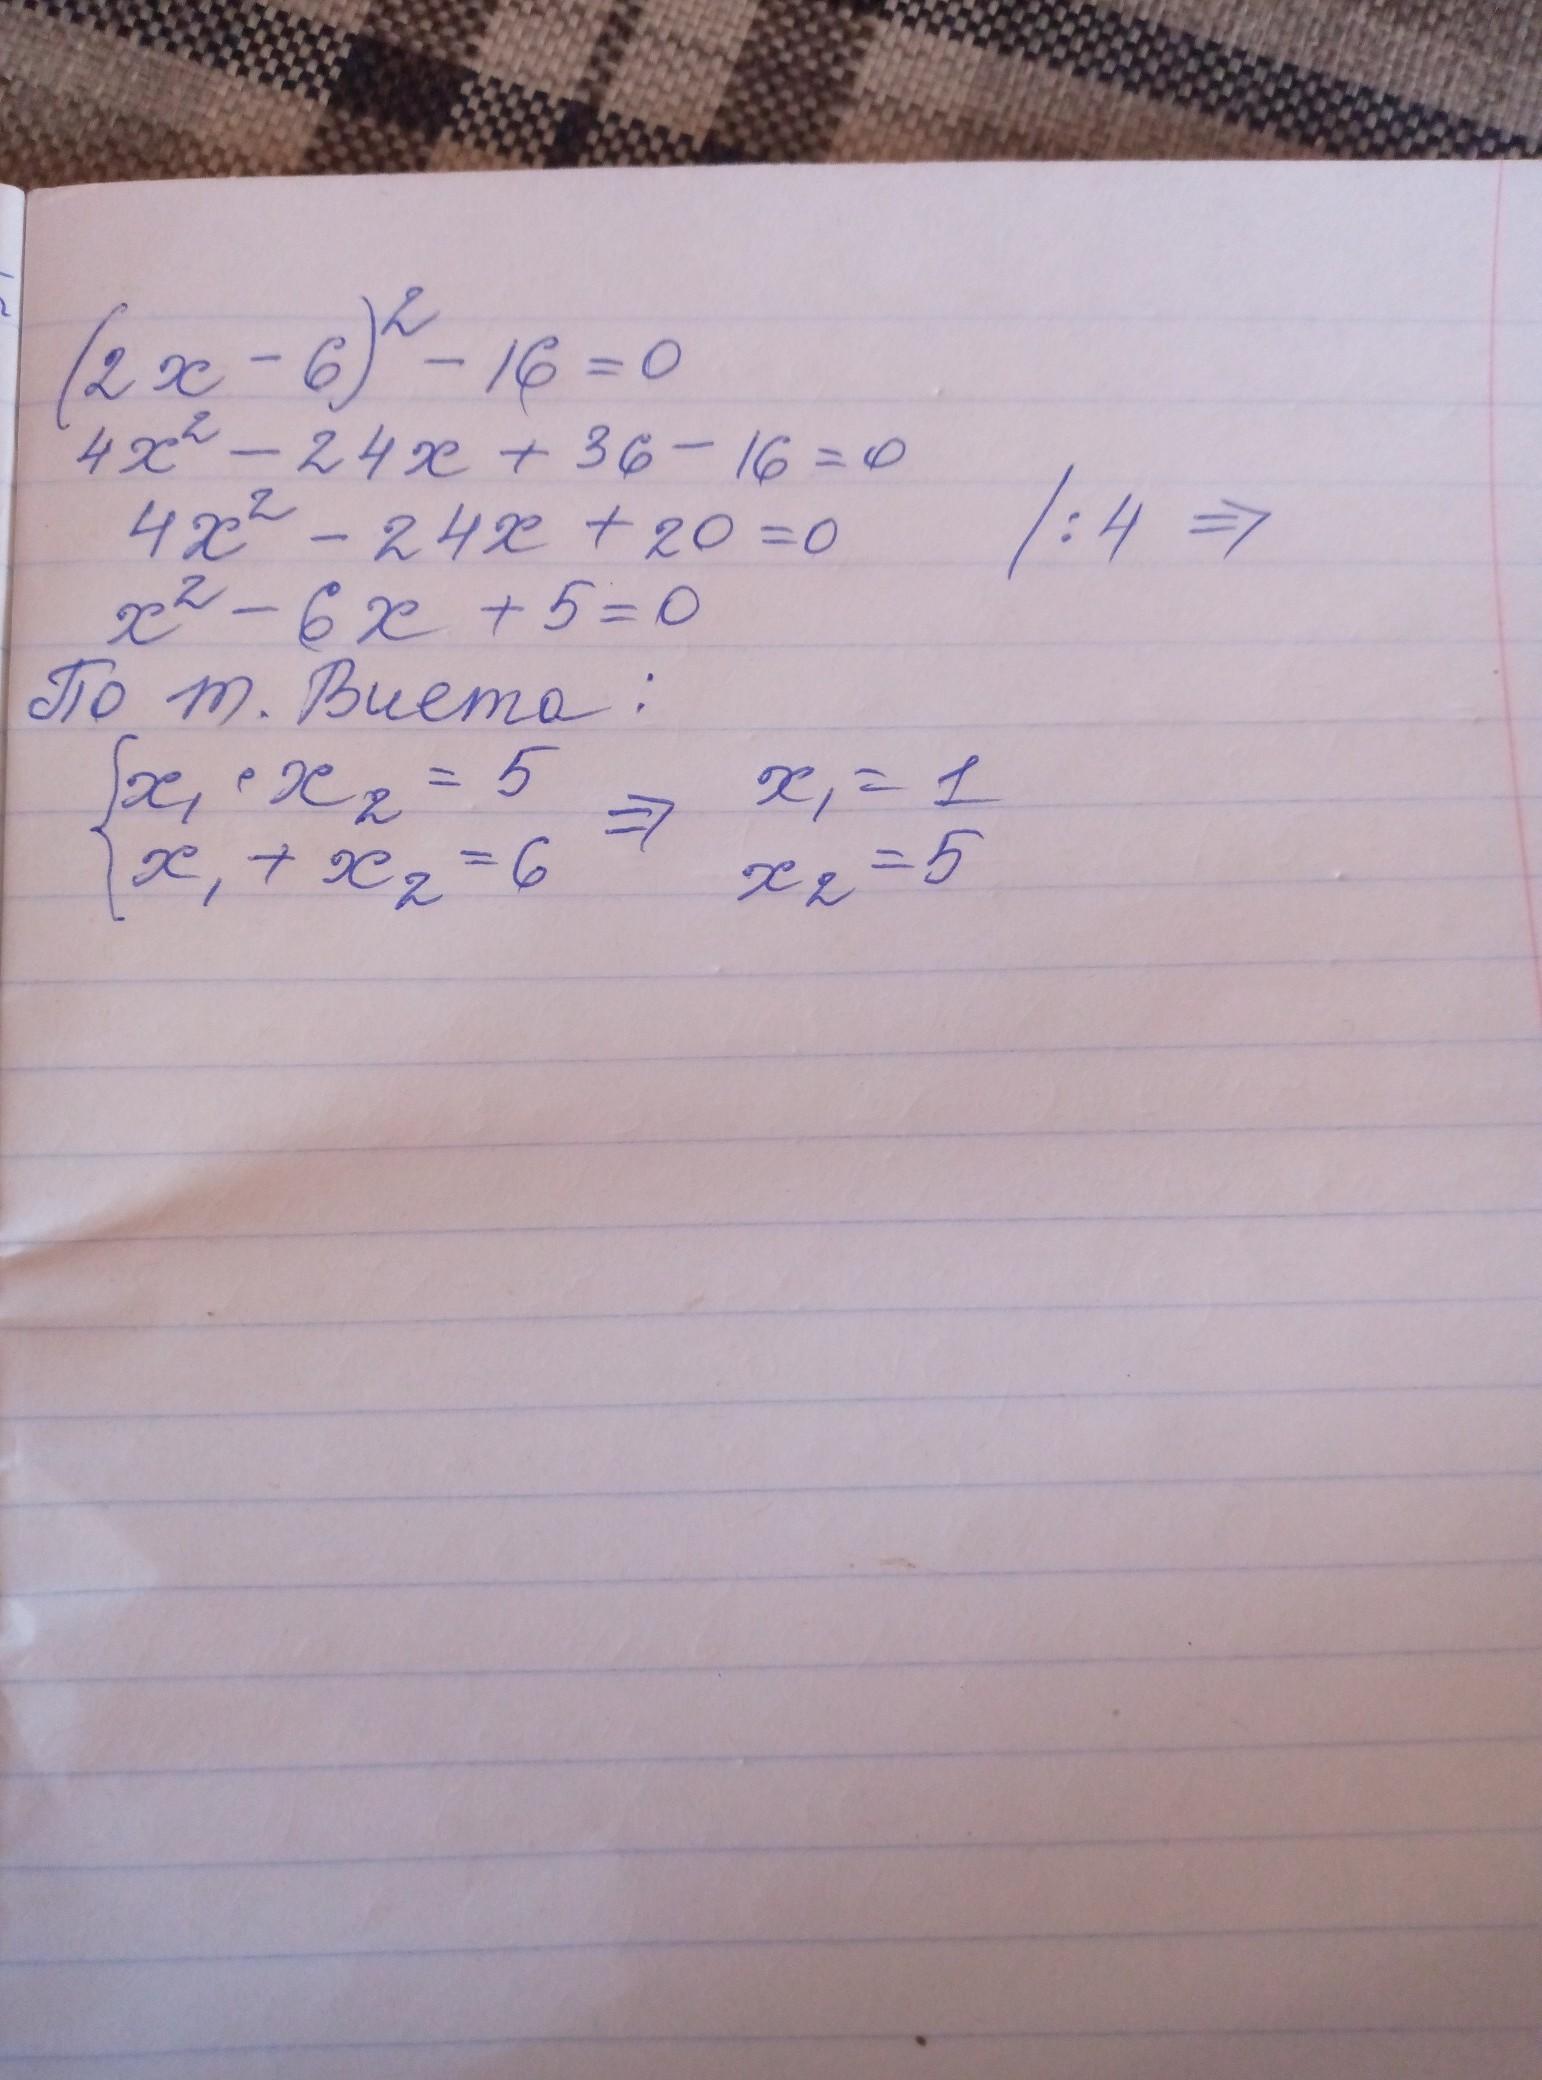 (2x - 6)² - 16 = 0
4x² - 24x + 36 - 16 = 0
4x² - 24x + 20 = 0 /:4 ⇒
x² - 6x + 5 = 0
По т. Виета:
{x₁ · x₂ = 5 ⇒ x₁ = 1
x₁ + x₂ = 6 x₂ = 5